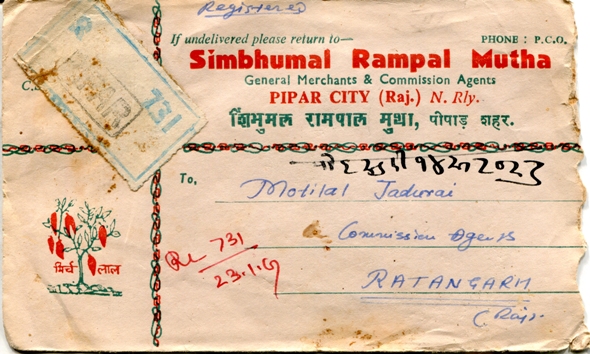 Registered
If undelivered please return to—
PHONE : P.C.O.
Simbhumal Rampal Mutha
General Merchants & Commission Agents
PIPAR CITY (Raj.) N. Rly.
शिंभुमल रामपाल मुथा, पीपाड़ शहर.
R
PIPAR
731
C.
To,
Motilal Jadwrai
Commission Agents
RATANGARH
(Raj.
Re 731
23.1.67
मिर्च लाल